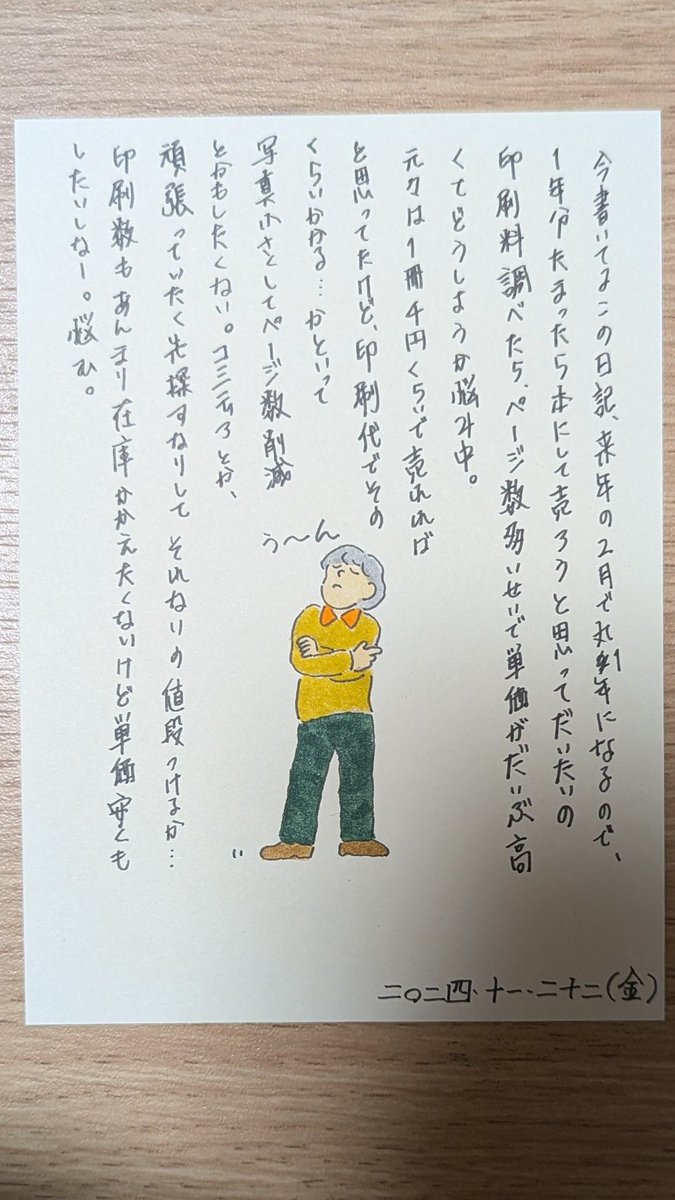 今書いてるこの日記、来年の2月で丸1年になるので、
1年分たまったら本にして売ろうと思ってだいたいの
印刷料調べたら、ページ数多いせいで単価がだいぶ高
くてどうしようか悩み中。
元々は1冊千円くらいで売れれば
と思ってたけど、印刷代でその
くらいかかる…かといって
写真小さくしてページ数削減
とかもしたくない。コミティアとか、
頑張っていたく先探すなりしてそれないの値段つけるか…
印刷数もあんまり在庫かかえたくないけど単価安くも
したいしなー。悩む。
う〜ん
二〇二四・十一・二十二(金)